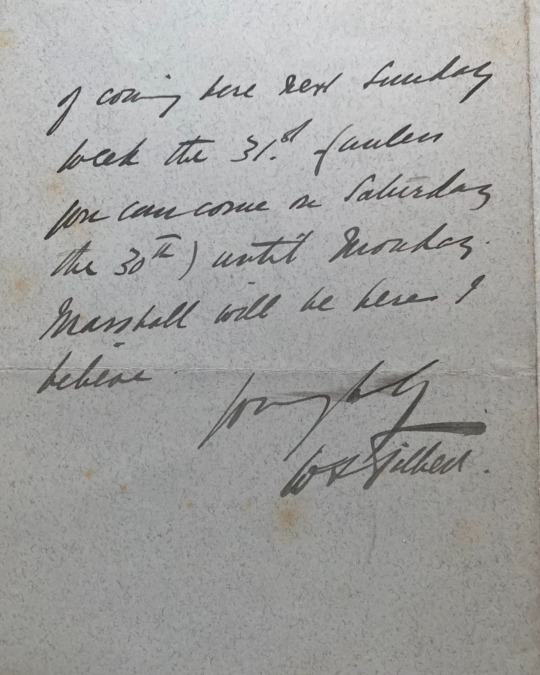 of coming here next Sunday
week the 31st (unless
you can come on Saturday
the 30th) until Monday.
Marshall will be here I
believe.
Yours truly
W S Gilbert.